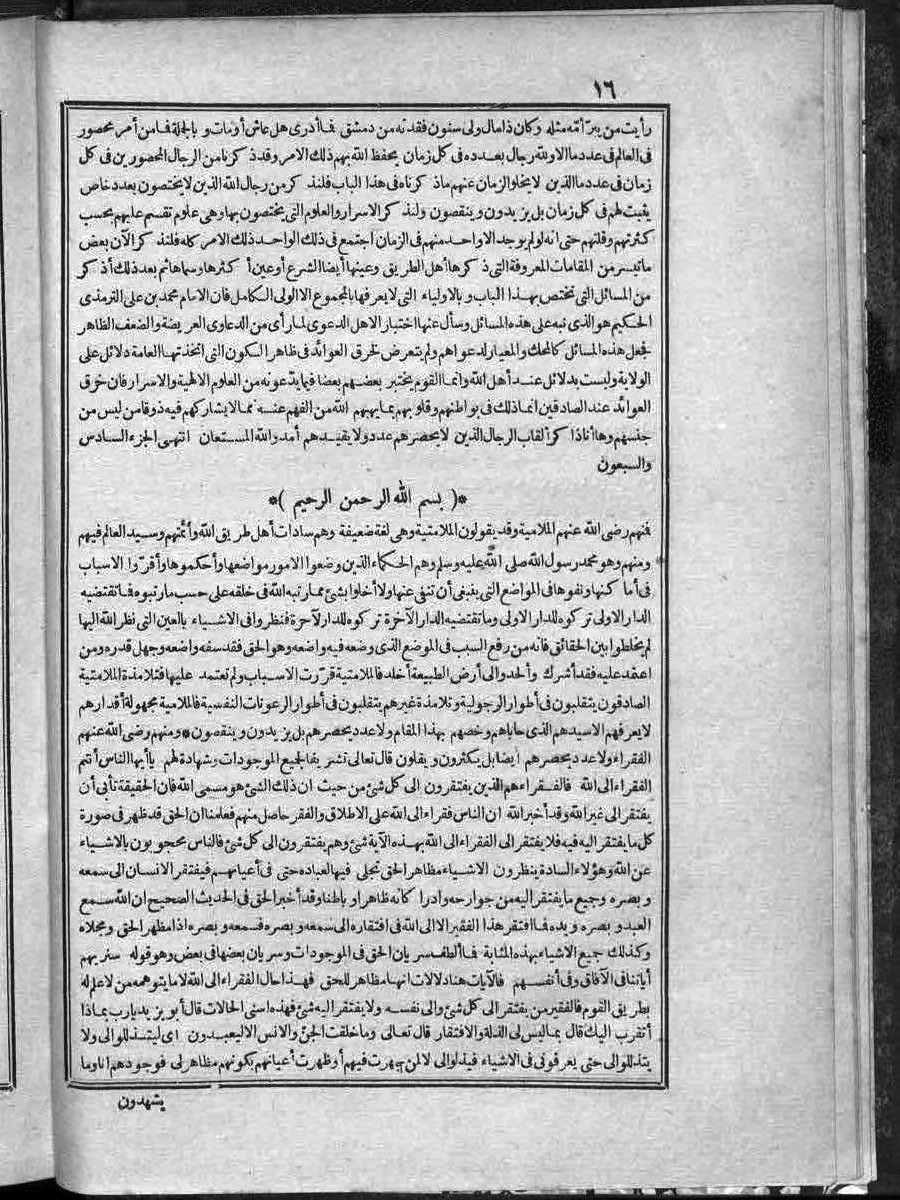 ١٦
رأيت من يبرّ أمّه مثله وكان ذا مال ولى سنون فقدته من دمشق فما أدرى هل عاش أو مات وبالجملة فما من أمر محصور
فى العالم فى عدد ما الاولله رجال بعدده فى كل زمان يحفظ الله بهم ذلك الامر وقد ذكرنا من الرجال المحصورين فى كل
زمان فى عدد ما الذين لا يخلو الزمان عنهم ماذكرناه فى هذا الباب فلنذكر من رجال الله الذين لا يختصون بعدد خاص
يثبت لهم فى كل زمان بل يزيدون وينقصون ولنذكر الاسرار والعلوم التى يختصون بها وهى علوم تقسم عليهم بحسب
كثرتهم وقلتهم حتى انه لو لم يوجد الا واحد منهم فى الزمان اجتمع فى ذلك الواحد ذلك الامر كله فلنذكر الآن بعض
ما تيسر من المقامات المعروفة التى ذكرها أهل الطريق وعينها أيضا الشرع أو عين أكثرها وسماها ثم بعد ذلك أذكر
من المسائل التى تختص بهذا الباب وبالاولياء التى لا يعرفها بالمجموع الا الولى الكامل فان الامام محمد بن على الترمذى
الحكيم هو الذى نبه على هذه المسائل وسأل عنها اختبار الاهل الدعوى لما رأى من الدعاوى العريضة والضعف الظاهر
فجعل هذه المسائل كالمحك والمعيار لدعواهم ولم يتعرض لخرق العوائد فى ظاهر الكون التى اتخذتها العامة دلائل على
الولاية وليست بدلائل عند أهل الله وانما القوم يختبر بعضهم بعضا فيما يدّعونه من العلوم الالهية والاسرار فان خرق
العوائد عند الصادقين انما ذلك فى بواطنهم وقلوبهم بما يهبهم الله من الفهم عنه مما لا يشاركهم فيه ذوقا من ليس من
جنسهم وها أنا ذا كر ألقاب الرجال الذين لا يحصرهم عدد ولا يقيدهم أمد والله المستعان انتهى الجزء السادس
والسبعون
*( بسم الله الرحمن الرحيم )*
فنهم رضى الله عنهم الملامية وقد يقولون الملامتية وهى لغة ضعيفة وهم سادات أهل طريق الله وأئمتهم وسيد العالم فيهم
ومنهم وهو محمد رسول الله صلى الله عليه وسلم وهم الحكماء الذين وضعوا الامور مواضعها وأحكموها وأقرّوا الاسباب
فى أماكنها ونفوها فى المواضع التى ينبغى أن تنفى عنها ولا أخلوا بشئ مما رتبه الله فى خلقه على حسب ما رتبوه فما تقتضيه
الدار الاولى تركوه للدار الاولى وما تقتضيه الدار الآخرة تركوه للدار الآخرة فنظروا فى الاشياء بالعين التى نظر الله اليها
لم يخلطوا بين الحقائق فانه من رفع السبب فى الموضع الذى وضعه فيه واضعه وهو الحق فقد سفه واضعه وجهل قدره ومن
اعتمد عليه فقد أشرك وألحد والى أرض الطبيعة أخلد فالملامتية قرّرت الاسباب ولم تعتمد عليها فتلامذة الملامتية
الصادقون يتقلبون فى أطوار الرجولية وتلامذة غيرهم يتقلبون فى أطوار الرعونات النفسية فالملامية مجهولة أقدارهم
لا يعرفهم الا سيدهم الذى حاباهم وخصهم بهذا المقام ولا عدد يحصرهم بل يزيدون وينقصون * ومنهم رضى الله عنهم
الفقراء ولا عدد يحصرهم ايضا بل يكثرون ويقلون قال تعالى تشريفا لجميع الموجودات وشهادة لهم يا أيها الناس أنتم
الفقراء الى الله فالفقراء هم الذين يفتقرون الى كل شئ من حيث ان ذلك الشئ هو مسمى الله فان الحقيقة تأبى أن
يفتقر الى غير الله وقد أخبر الله ان الناس فقراء الى الله على الاطلاق والفقر حاصل منهم فعلمنا ان الحق قد ظهر فى صورة
كل ما يفتقر اليه فيه فلا يفتقر الى الفقراء الى الله بهذه الآية شئ وهم يفتقرون الى كل شئ فالناس محجوبون بالاشياء
عن الله وهؤلاء السادة ينظرون الاشياء مظاهر الحق تجلى فيها لعباده حتى فى أعيانهم فيفتقر الانسان الى سمعه
وبصره وجميع ما يفتقر اليه من جوارحه وادراكاته ظاهرا وباطنا وقد أخبر الحق فى الحديث الصحيح ان الله سمع
العبد وبصره ويده فما افتقر هذا الفقير الا الى الله فى افتقاره الى سمعه وبصره فسمعه وبصره اذا مظهر الحق ومجلاه
وكذلك جميع الاشياء بهذه المثابة فما ألطف سريان الحق فى الموجودات وسريان بعضها فى بعض وهو قوله سنريهم
آياتنا فى الآفاق وفى أنفسهم فالآيات هنا دلالات انها مظاهر للحق فهذا حال الفقراء الى الله لا ما يتوهمه من لا علم له
بطريق القوم فالفقير من يفتقر الى كل شئ والى نفسه ولا يفتقر اليه شئ فهذه اسنى الحالات قال أبو يزيد يا رب بماذا
أتقرب اليك قال بما ليس لى الذلة والافتقار قال تعالى وما خلقت الجنّ والانس الا ليعبدون اى ليتذللوا لى ولا
يتذللوا لى حتى يعرفونى فى الاشياء فيذلوا لى لا لمن ظهرت فيهم أو ظهرت أعيانهم بكونهم مظاهر لى فوجودهم انا وما
يشهدون